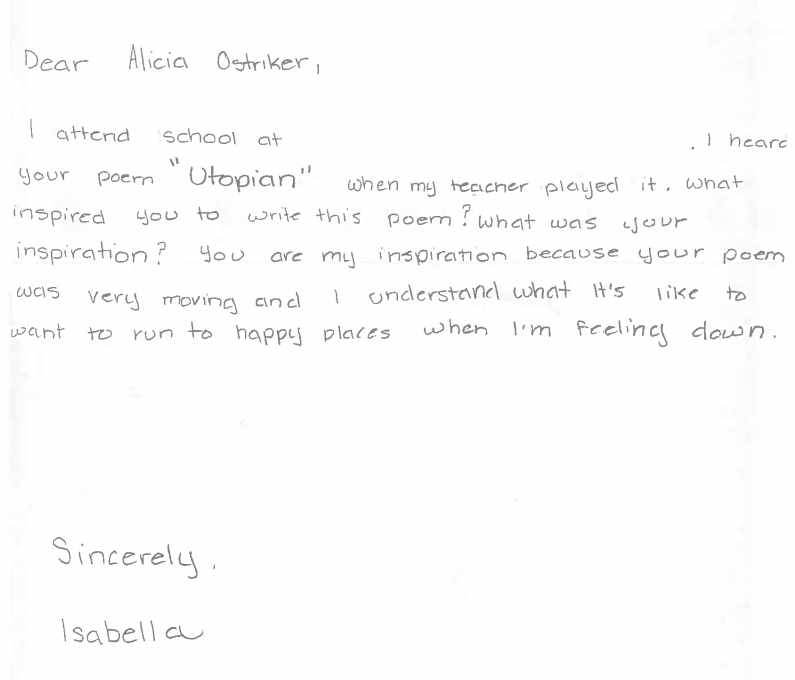 Dear Alicia Ostriker,
I attend school at . I heard
your poem "Utopian" when my teacher played it. What
inspired you to write this poem? What was your
inspiration? You are my inspiration because your poem
was very moving and I understand what it's like to
want to run to happy places when I'm feeling down.
Sincerely,
Isabella